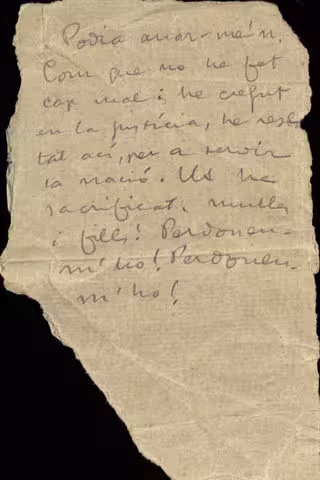 Podia anar-me'n.
Com que no he fet
cap mal i he cregut
en la justícia, he res-
tat ací, per a servir
la nació. Us he
sacrificat, muller
i fills! Perdoneu-
m'ho! Perdoneu-
m'ho!